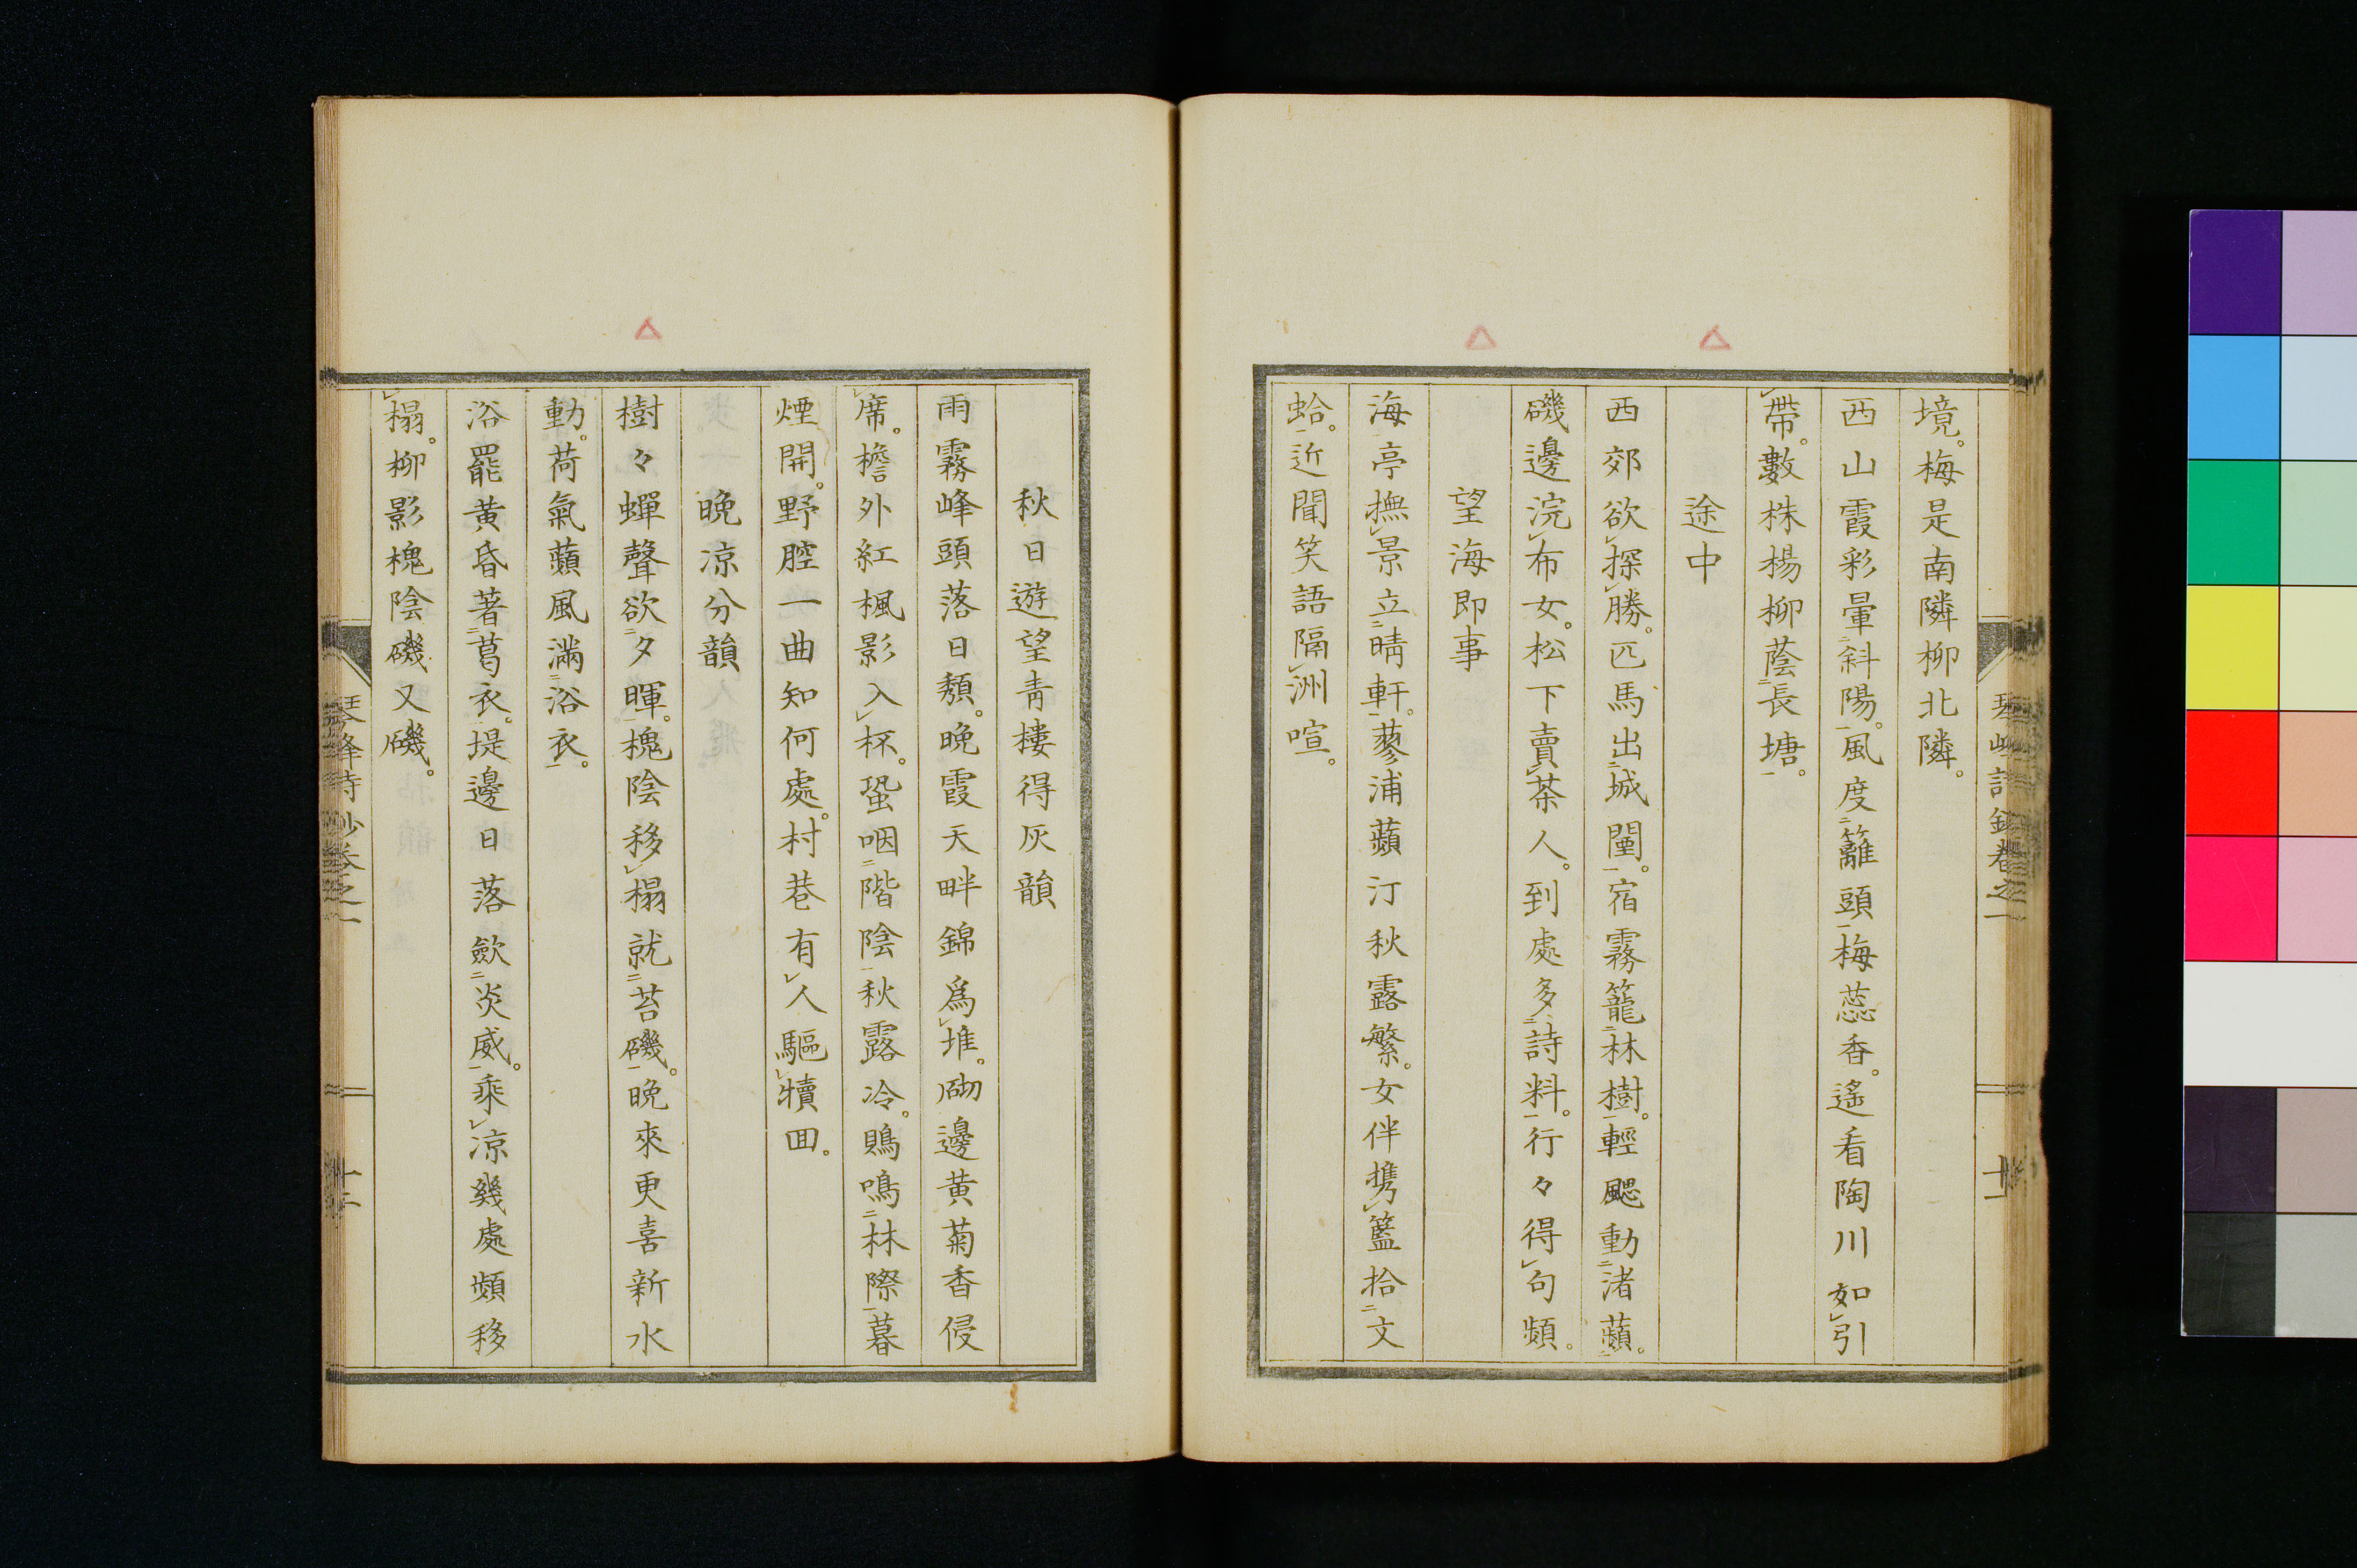 境。梅是南隣柳北隣。
西山霞彩暈二斜陽一。風度二籬頭一梅蕊香。遙看陶川如レ引
レ帶。數株楊柳蔭二長塘一。
途中
西郊欲レ探レ勝。匹馬出二城闉一。宿霧籠二林樹一。輕颸動二渚蘋一。
磯邊浣レ布女。松下賣レ茶人。到處多二詩料一。行々得レ句頻。
望海即事
海亭撫レ景立二晴軒一。蓼浦蘋汀秋露繁。女伴携レ籃拾二文
蛤一。近聞笑語隔レ洲喧。
秋日遊望青樓得灰韻
雨霧峰頭落日頽。晩霞天畔錦爲レ堆。砌邊黄菊香侵
レ席。檐外紅楓影入レ杯。蛩咽二階陰一秋露冷。鵙鳴二林際一暮
煙開。野腔一曲知何處。村巷有レ人驅レ犢回。
晩凉分韻
樹々蟬聲欲二夕暉一。槐陰移レ榻就二苔磯一。晩來更喜新水
動。荷氣蘋風滿二浴衣一。
浴罷黄昏著二葛衣一。堤邊日落歛二炎威一。乘レ凉幾處頻移
レ榻。柳影槐陰磯又磯。